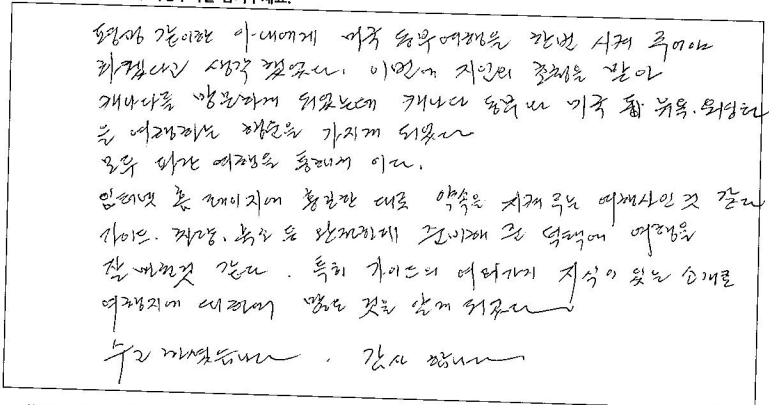 평생 같이한 아내에게 미국 동부여행을 한번 시켜 주어야
하겠다고 생각 했었다. 이번에 지인의 초청을 받아
캐나다를 방문하게 되었는데 캐나다 동부와 미국 뉴욕, 워싱턴
을 여행하는 행운을 가지게 되었다
모두 파란 여행을 통해서 이다.
인터넷 홈페이지에 있는 대로 약속을 지켜주는 여행사인 것 같다
가이드, 차량, 숙소 등 완전하게 준비해 준 덕택에 여행을
잘 한것 같다. 특히 가이드의 여러가지 지식이 있는 소개로
여행지에 대하여 많은 것을 알게 되었다
수고 하셨습니다. 감사 합니다